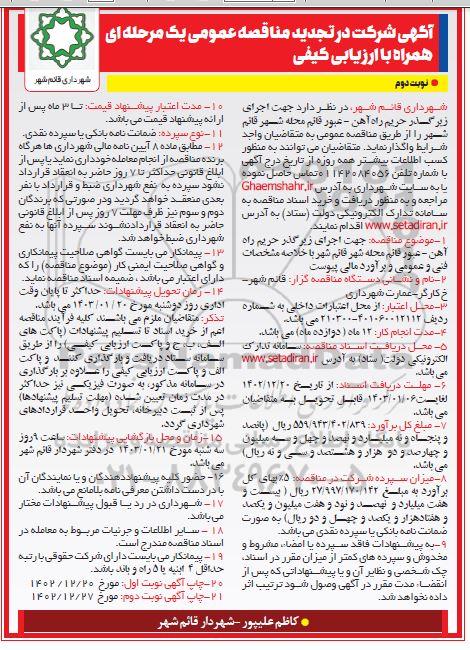 آگهی شرکت در تجدید مناقصه عمومی یک مرحله ای
همراه با ارزیابی کیفی
شهرداری قائم شهر
نوبت دوم
شهرداری قائم شهر، در نظر دارد جهت اجرای
زیرگذر حریم راه آهن - عبور قائم محله شهر قائم
شهر را از طریق مناقصه عمومی به متقاضیان واجد
شرایط واگذار نماید. متقاضیان می توانند به منظور
کسب اطلاعات بیشتر همه روزه از تاریخ درج آگهی
با شماره تلفن ۰۱۱۴۲۰۸۴۰۵۶ تماس حاصل نموده
یا به سایت شهرداری به آدرس Ghaemshahr.ir
مراجعه و به منظور دریافت و خرید اسناد مناقصه به
سامانه تدارک الکترونیکی دولت (ستاد) به آدرس
www.setadiran.ir اقدام نمایند.
۱-موضوع مناقصه: جهت اجرای زیرگذر حریم راه
آهن - عبور قائم محله شهر قائم شهر با خلاصه مشخصات
فنی و عمومی و برآورد مالی پیوست
۲-نام و نشانی دستگاه مناقصه گزار: قائم شهر-
خ کارگر-عمارت شهرداری
۳-محل اعتبار: از محل اعتبارات داخلی به شماره
ردیف می باشد.
۴-مدت انجام کار: ۱۲ ماه (دوازده ماه) می باشد.
۵- محل دریافت اسناد مناقصه: سامانه تدارک
الکترونیکی دولت( ستاد) به آدرس www.setadiran.ir
می باشد.
۶- مهلت دریافت اسناد: از تاریخ ۱۴۰۲/۱۲/۲۰
لغایت ۱۴۰۳/۰۱/۰۶ قابل تحویل به متقاضیان
می باشد.
۷- مبلغ کل برآورد: ۵۵۹/۹۴۳/۴۰۲/۸۳۹ ریال (پانصد
و پنجاه و نه میلیارد و نهصد و چهل و سه میلیون
و چهارصد و دو هزار و هشتصد و سی و نه ریال)
می باشد.
۸-میزان سپرده شرکت در مناقصه: ۵٪ بهای کل
برآورد به مبلغ ۲۷/۹۹۷/۱۷۰/۱۴۲ ریال ( بیست و
هفت میلیارد و نهصد و نود و هفت میلیون و یکصد
و هفتاد هزار و یکصد و چهل و دو ریال) به صورت
ضمانت نامه بانکی یا سپرده نقدی می باشد.
۹-به پیشنهادات فاقد سپرده یا امضاء مشروط و
مخدوش و سپرده های کمتر از میزان مقرر در اسناد،
چک شخصی و نظایر آن و یا پیشنهاداتی که پس از
انقضاء مدت مقرر در آگهی وصول شود ترتیب اثر
داده نخواهد شد.
۱۰- مدت اعتبار پیشنهاد قیمت: تا ۳ ماه پس از
ارائه پیشنهاد قیمت می باشد.
۱۱-نوع سپرده: ضمانت نامه بانکی یا سپرده نقدی.
۱۲- مطابق ماده ۸ آیین نامه مالی شهرداری ها هرگاه
برنده مناقصه از انجام معامله خودداری نماید یا پس از
ابلاغ قانونی حداکثر تا ۷ روز حاضر به انعقاد قرارداد
نشود سپرده به نفع شهرداری ضبط و قرارداد با نفر
بعدی منعقد خواهد گردید و در صورتی که برندگان
دوم و سوم نیز ظرف مهلت ۷ روز پس از ابلاغ قانونی
حاضر به انعقاد قرارداد نشوند سپرده آنها به نفع
شهرداری ضبط خواهد شد.
۱۳- پیمانکار می بایست گواهی صلاحیت پیمانکاری
و گواهی صلاحیت ایمنی کار (موضوع مناقصه) را که
دارای اعتبار می باشد، ضمیمه اسناد مناقصه نماید.
۱۴- زمان تحویل پیشنهادات: حداکثر تا پایان وقت
اداری روز دوشنبه مورخ ۱۴۰۳/۰۱/۲۰ می باشد.
تذکر: متقاضیان ملزم می باشند کلیه فرآیند مناقصه
اعم از خرید اسناد تا تسلیم پیشنهادات (پاکت های
الف، ب، ج و پاکت ارزیابی کیفی) را از طریق
سامانه ستاد دریافت و بارگذاری کنند و پاکت
الف و پاکت ارزیابی کیفی را علاوه بر بارگذاری
در سامانه مذکور، به صورت فیزیکی نیز حداکثر
در مدت زمان تعیین شده (مهلت تسلیم پیشنهادها)
پس از ثبت دبیرخانه، تحویل واحد قراردادهای
شهرداری گردد.
۱۵- زمان و محل بازگشایی پیشنهادات: ساعت ۹ روز
سه شنبه مورخ ۱۴۰۳/۰۱/۲۱ در دفتر شهردار قائم شهر
می باشد.
۱۶- حضور کلیه پیشنهاددهندگان و یا نمایندگان آن
با در دست داشتن معرفی نامه بلامانع می باشد.
۱۷- شهرداری در رد یا قبول پیشنهادات مختار
می باشد.
۱۸ - سایر اطلاعات و جزئیات مربوط به معامله در
اسناد مناقصه مندرج است.
۱۹- پیمانکار می بایست دارای شرکت حقوقی با رتبه
حداقل ۴ ابنیه یا ۵ راه و باند باشد.
۲۰-چاپ آگهی نوبت اول: مورخ ۱۴۰۲/۱۲/۲۰
۲۱-چاپ آگهی نوبت دوم: مورخ ۱۴۰۲/۱۲/۲۷
کاظم علیپور - شهردار قائم شهر